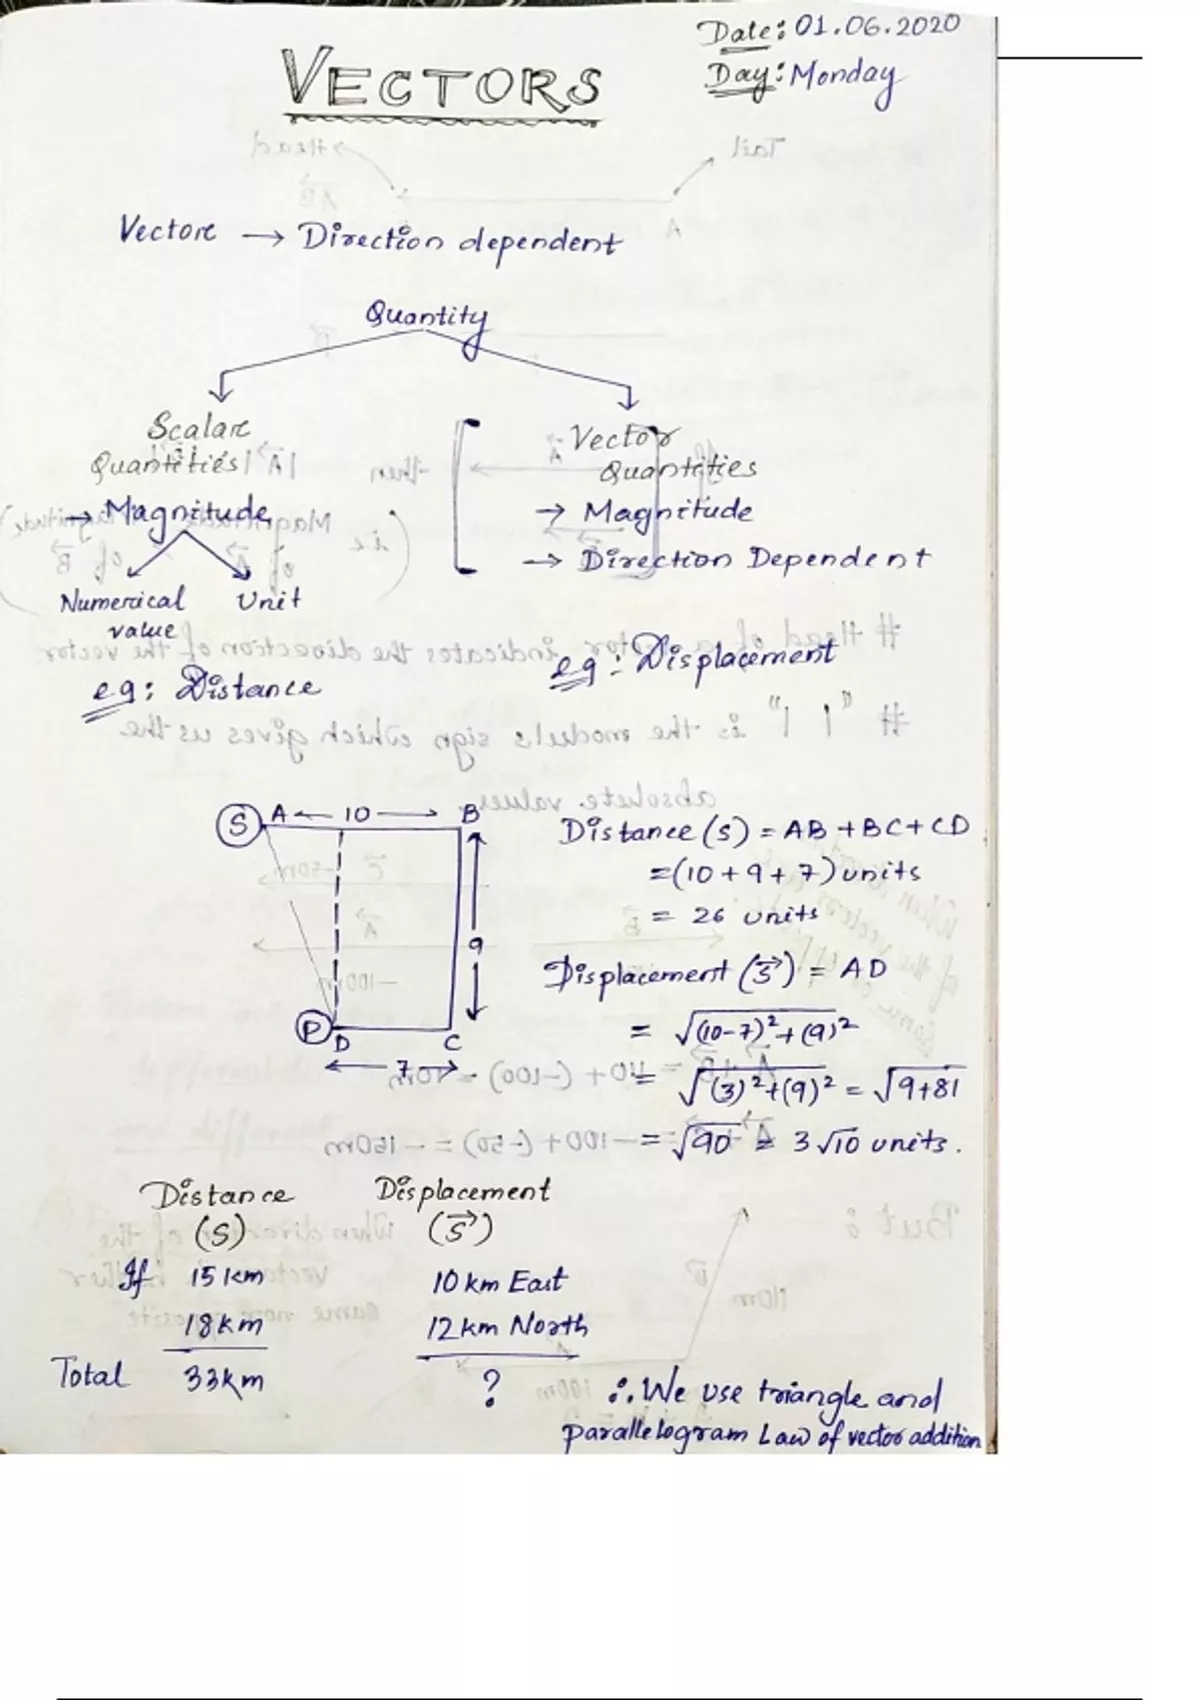 Date: 01.06.2020
Day: Monday
VECTORS
Vector → Direction dependent
Quantity
Scalar
Quantities
→ Magnitude
Numerical
value
Unit
eg: Distance
Vector
Quantities
→ Magnitude
→ Direction Dependent
eg: Displacement
S A ← 10 → B
9
P D C
← 7 →
Distance (S) = AB + BC + CD
= (10 + 9 + 7) units
= 26 units
Displacement (S⃗) = AD
= √(10-7)² + (9)²
= √(3)² + (9)² = √9+81
= √90 = 3√10 units.
Distance Displacement
(S) (S⃗)
If 15 km 10 km East
18 km 12 km North
Total 33 km ?
∴ We use triangle and
parallelogram Law of vector addition